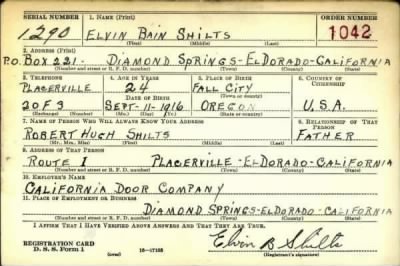 SERIAL NUMBER 1. NAME (Print) ORDER NUMBER
1290 ELVIN BAIN SHILTS 1042
(First) (Middle) (Last)
2. ADDRESS (Print)
P.O. BOX 221 - DIAMOND SPRINGS - ELDORADO - CALIFORNIA
(Number and street or R. F. D. number) (Town) (County) (State)
3. TELEPHONE 4. AGE IN YEARS 5. PLACE OF BIRTH 6. COUNTRY OF CITIZENSHIP
PLACERVILLE 24 FALL CITY
DATE OF BIRTH (Town or county)
20F3 SEPT-11-1916 OREGON U.S.A.
(Exchange) (Number) (Mo.) (Day) (Yr.) (State or country)
7. NAME OF PERSON WHO WILL ALWAYS KNOW YOUR ADDRESS 8. RELATIONSHIP OF THAT PERSON
ROBERT HUGH SHILTS FATHER
(Mr., Mrs., Miss) (First) (Middle) (Last)
9. ADDRESS OF THAT PERSON
ROUTE 1 PLACERVILLE - ELDORADO - CALIFORNIA
(Number and street or R. F. D. number) (Town) (County) (State)
10. EMPLOYER'S NAME
CALIFORNIA DOOR COMPANY
11. PLACE OF EMPLOYMENT OR BUSINESS
DIAMOND SPRINGS - ELDORADO - CALIFORNIA
(Number and street or R. F. D. number) (Town) (County) (State)
I AFFIRM THAT I HAVE VERIFIED ABOVE ANSWERS AND THAT THEY ARE TRUE.
REGISTRATION CARD
D. S. S. Form 1 16-17105 Elvin B Shilts